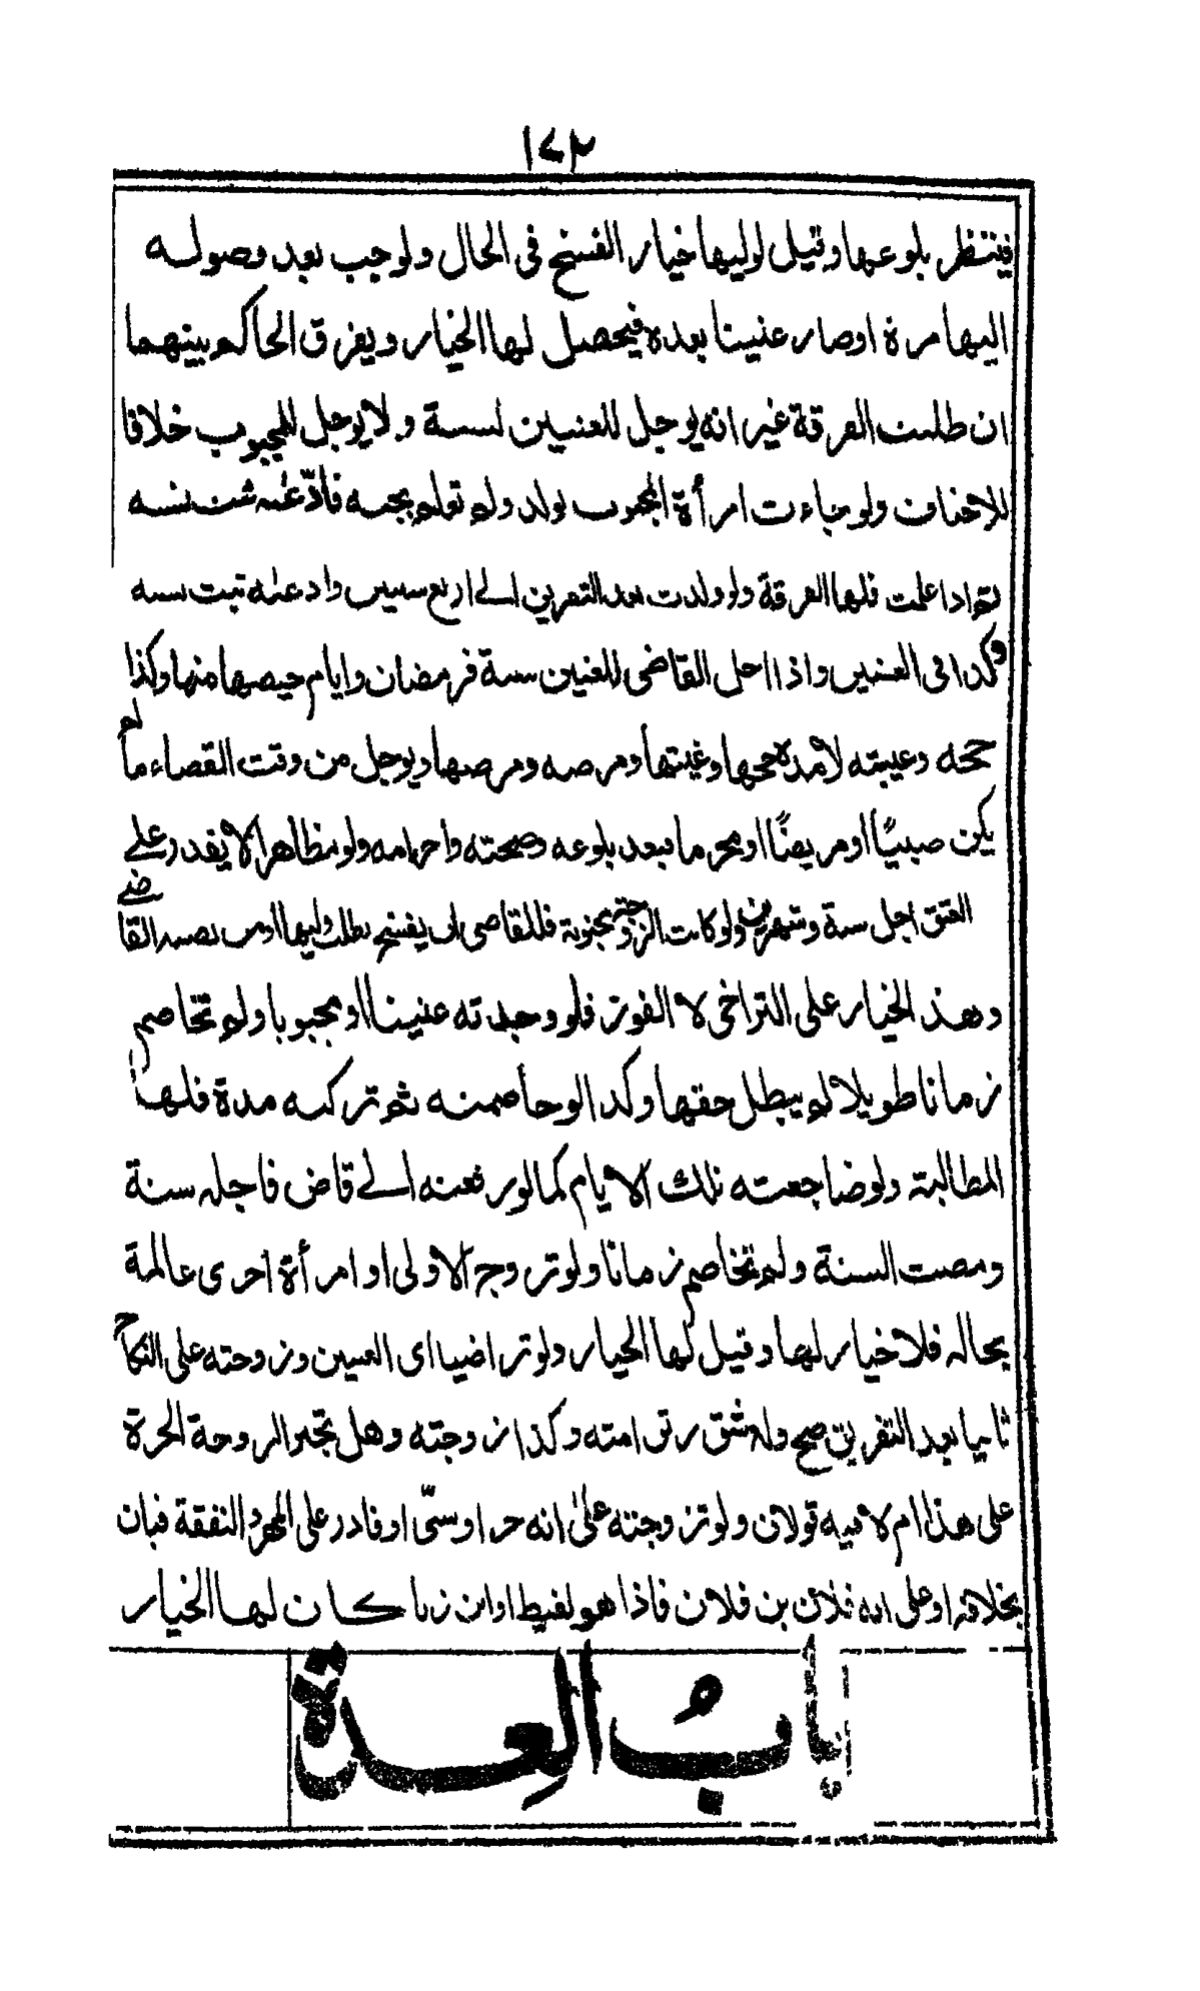 ١٧٢
فينتظر بلوغها وقيل لوليها خيار الفسخ في الحال ولو جب بعد وصوله
اليها مرة او صار عنينا بعده فيحصل لها الخيار ويفرق الحاكم بينهما
ان طلبت الفرقة غير انه يوجل للعنين لسنة ولا يوجل للمجبوب خلافا
للاحناف ولو جاءت امرأة المجبوب بولد ولم تعلم بجبه فادّعاه ثبت نسبه
ثم اذا علمت فلها الفرقة ولو ولدت بعد التفريق الے اربع سنين وادعاه ثبت نسبه
وكذا فى العنين واذا اجل القاضى للعنين سنة فرمضان وايام حيضها منها وكذا
حجه وغيبته لا مدة حجها وغيبتها ومرضه ومرضها ويوجل من وقت القضاء ما لم
يكن صبيًا او مريضًا او محرما فبعد بلوغه وصحته واحرامه ولو مظاهرا لا يقدر علے
العتق اجل سنة وشهرين ولو كانت الزوجة مجنونة فللقاضى ان يفسخ بطلب وليها او من نصبه القاضے
وهذ الخيار على التراخى لا الفور فلو وجدته عنينا او مجبوبا ولم تخاصم
زمانا طويلا لم يبطل حقها وكذا لو خاصمته ثم تركته مدة فلها
المطالبة ولو ضاجعته تلك الايام كما لو رفعته الے قاض فاجله سنة
ومضت السنة ولم تخاصم زمانا ولو تزوج الاولى او امرأة اخرى عالمة
بحاله فلا خيار لها وقيل لها الخيار ولو تراضيا اى العنين وزوجته على النكاح
ثانيا بعد التفريق صح وله شق رتق امته وكذا زوجته وهل تجبر الزوجة الحرة
على هذا ام لا فيه قولان ولو تزوجته علىٰ انه حر او سنّى او قادر على المهر والنفقة فبان
بخلافه او على انه فلان بن فلان فاذا هو لقيط او ابن زنا كان لها الخيار
بابُ العِدة